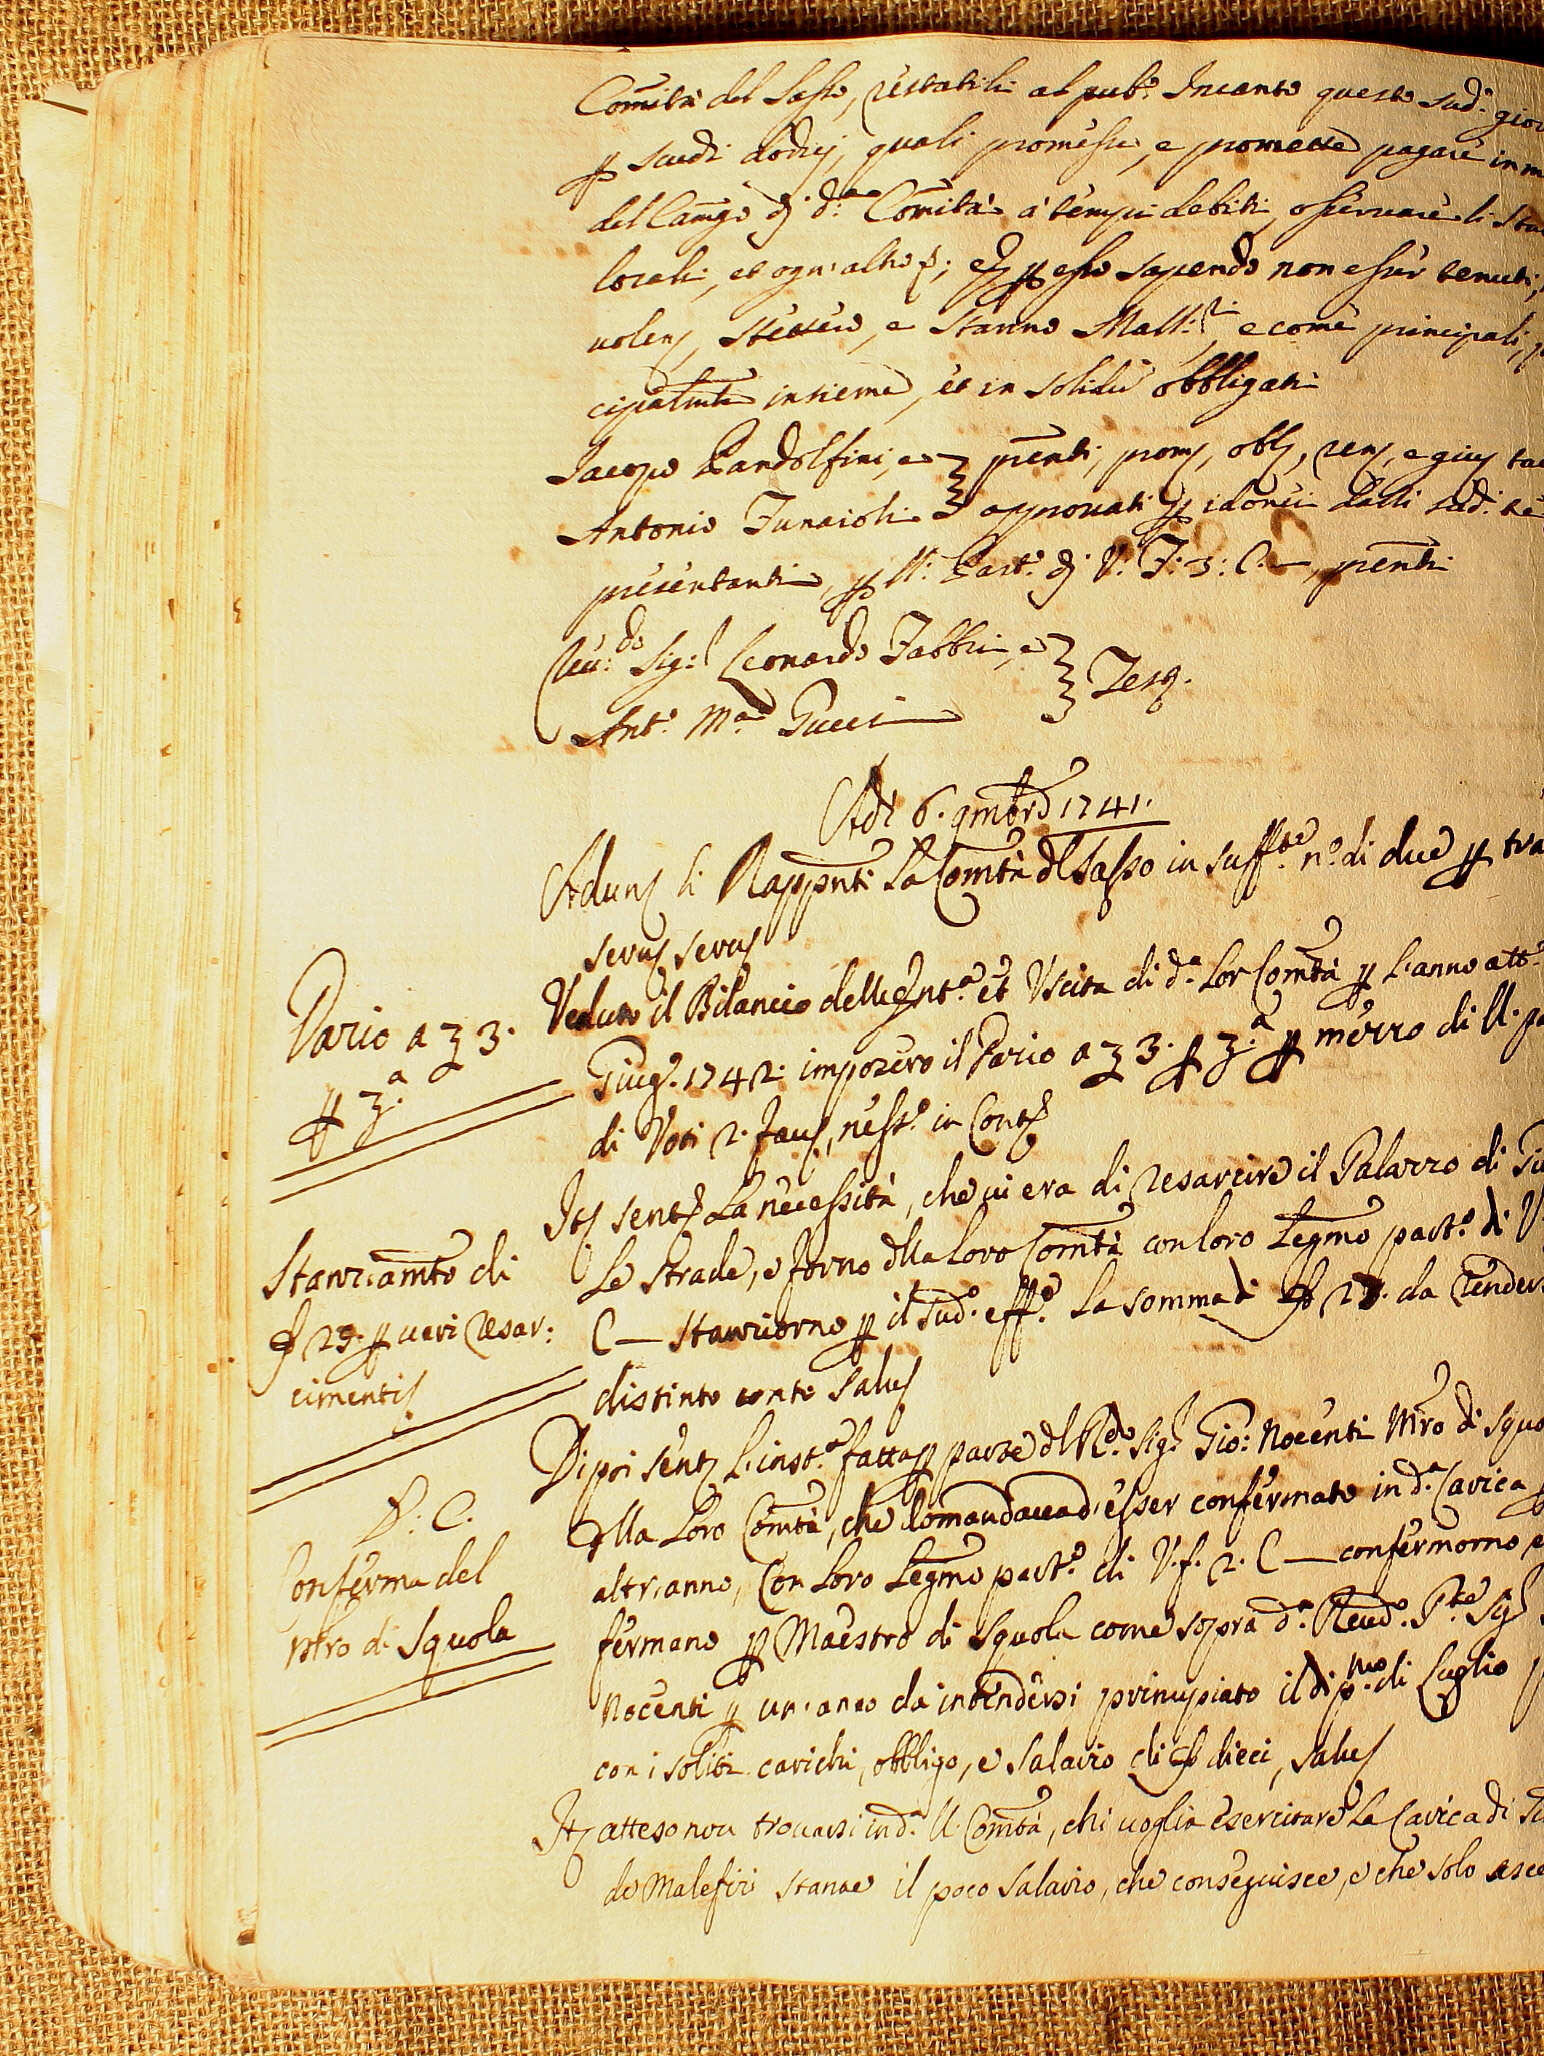 Comita del Sasso, restatili al pub.o Incanto questo sud.o gior
p scudi dodici, quali promesse, e promette pagare in m
del Camgo di d.a Comità a tempi debiti, osservare li Sta
locali, et ogni altro p; e p esso sapendo non esser tenuti,
volens, stettero, e stanno Mall.ri e come principali,
cipalmte insieme, et in solidū obbligati
Jacopo Pandolfini, e
Antonio Funaioli
pnti, prom, obb, ren, e giu
approvati p idonei dalli sud.i
presentanti, p il: Part.o di V: F: 3: C. —, pnti
Reu:do Sig:r Leonardo Fabbri, e
Ant.o M.a Gucci
Test.
Adi 6. 9mbre 1741.
Adun li Rappnti La Comtà dl Sasso in suff.te n.o di due p tra
serv serv
Veduto il Bilancio dell'Ent.a et Uscita di d.a Lor Comtà p l'anno att.o
Giug.o 1742. imposero il Dazio a 3 3. p 3.a p mezzo di U. pa
di Voti 2. fav, ness.o in Cont
Dazio a 3 3.
p 3.a
It sent La necessità, che vi era di resarcire il Palazzo di Giu
Le strade, e forno dlla loro Comtà con loro Legmo part.o di V.
C — stanziorno p il sud.o eff.o La somma di 29. da render
distinto conto Salu
Stanziamto di
29. p vari resar:
cimenti
Di poi sent l'inst.a fatta p parte dl R.do Sig.r Gio: Nocenti Mro di squo
dlla Loro Comtà, che domandava d'esser confermato in d.a Carica p
altr'anno, Con Loro Legmo part.o di V. f. 2. C — confermorno, e
fermano p Maestro di Squola come sopra d.o Reud.o P.te Sig.r
Nocenti p un'anno da intendersi principiato il di p.mo di Luglio
con i soliti carichi, obbligo, e Salario di dieci, Salu
D: C.
Conferma del
Mro di Squola
It atteso non trovarsi in d.a U. Comtà, chi voglia esercitare La Carica di
de Malefizi stante il poco Salario, che conseguisce, e che solo asce